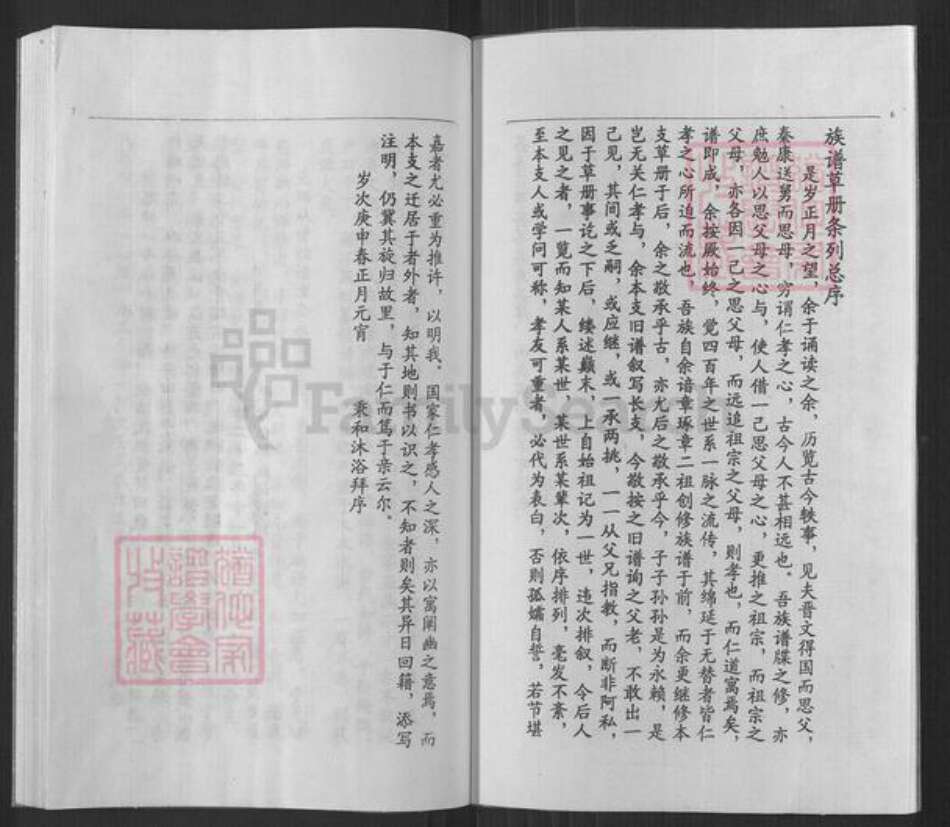 族谱草册条列总序
是岁正月之望，余于诵读之余，历览古今轶事，见夫晋文得国而思父，
秦康送舅而思母，穷谓仁孝之心，古今人不甚相远也。吾族谱牒之修，亦
庶勉人以思父母之心与，使人借一己思父母之心，更推之祖宗，而祖宗之
父母，亦各因一己之思父母，而远追祖宗之父母，则孝也，而仁道寓焉矣，
谱即成，余按厥始终，觉四百年之世系一脉之流传，其绵延于无替者皆仁
孝之心所迫而流也，吾族自余谙章琢章二祖创修族谱于前，而余更继修本
支草册于后，余之敬承乎古，亦尤后之敬承乎今，子子孙孙是为永赖，是
岂无关仁孝与，余本支旧谱叙写长支，今敬按之旧谱询之父老，不敢出一
己见，其间或乏嗣，或应继，或一承两挑，一一从父兄指教，而断非阿私，
因于草册事讫之下后，缕述巅末，上自始祖记为一世，违次排叙，令后人
之见之者，一览而知某人系某世，某世系某辈次，依序排列，毫发不紊，
至本支人或学问可称，孝友可重者，必代为表白，否则孤孀自誓，若节堪
嘉者尤必重为推许，以明我。国家仁孝感人之深，亦以寓阐幽之意焉，而
本支之迁居于者外者，知其地则书以识之，不知者则矣其异日回籍，添写
注明，仍冀其旋归故里，与于仁而笃于亲云尔。
岁次庚申春正月元宵 秉和沐浴拜序
FamilySearch
6
7